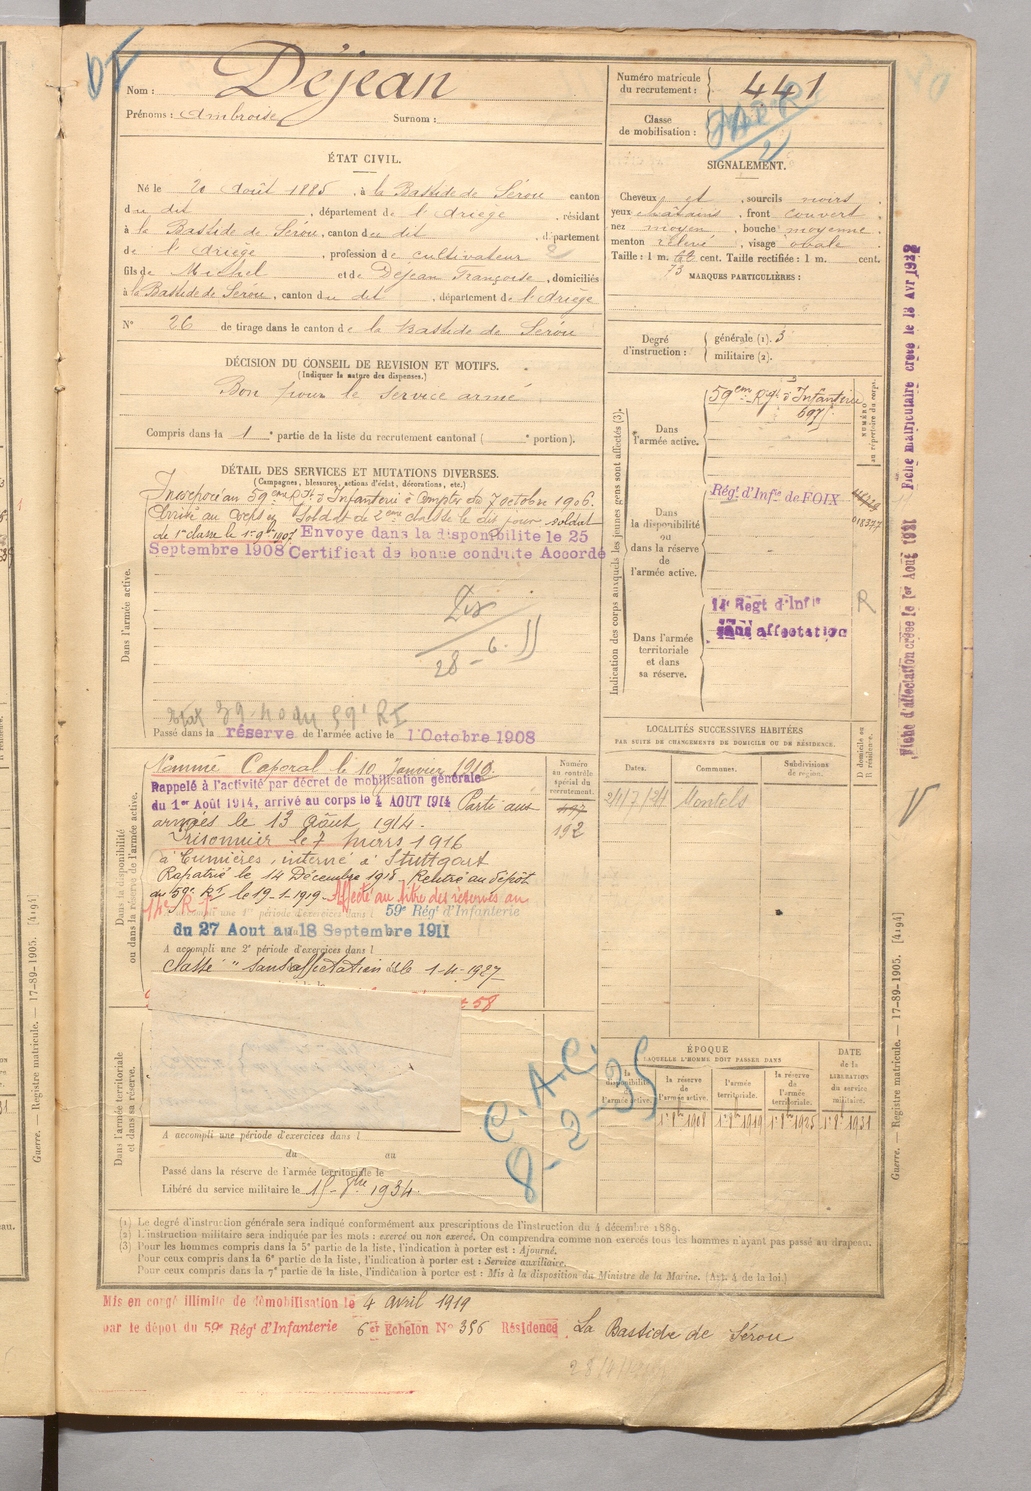 Nom : Déjean
Prénoms : Ambroise Surnom :
Numéro matricule du recrutement : 441
Classe de mobilisation :
ÉTAT CIVIL.
Né le 20 Août 1885, à la Bastide de Sérou canton
du dit, département de l'Ariège, résidant
à la Bastide de Sérou, canton du dit, département
de l'Ariège, profession de cultivateur
fils de Michel et de Dejean Françoise, domiciliés
à la Bastide de Sérou, canton du dit, département de l'Ariège
N° 26 de tirage dans le canton de la Bastide de Sérou
SIGNALEMENT.
Cheveux et, sourcils noirs
yeux chatains, front couvert
nez moyen, bouche moyenne
menton relevé, visage ovale
Taille : 1 m. cent. Taille rectifiée : 1 m. cent.
73
MARQUES PARTICULIÈRES :
Degré d'instruction : générale (1). 3
militaire (2).
DÉCISION DU CONSEIL DE REVISION ET MOTIFS.
(Indiquer la nature des dispenses.)
Bon pour le service armé
Compris dans la 1e partie de la liste du recrutement cantonal ( e portion).
DÉTAIL DES SERVICES ET MUTATIONS DIVERSES.
(Campagnes, blessures, actions d'éclat, décorations, etc.)
Dans l'armée active.
Incorporé au 59eme Rgt d'Infanterie à compter du 7 octobre 1906.
Arrivé au corps et soldat de 2eme classe le dit jour soldat
de 1e classe le 1er 9bre 1907 Envoyé dans la disponibilité le 25
Septembre 1908 Certificat de bonne conduite Accordé
28-6.
39-40 du 59e RI
Passé dans la réserve de l'armée active le 1 Octobre 1908
Indication des corps auxquels les jeunes gens sont affectés (3).
Dans l'armée active.
59em Rgt d'Infanterie
697
NUMÉRO au répertoire du corps.
Dans la disponibilité ou dans la réserve de l'armée active.
Régt d'Infie de FOIX
Dans l'armée territoriale et dans sa réserve.
14e Regt d'Infie
sans affectation
R
Fiche matriculaire créée le 18 Avr 1928
Fiche d'affectation créée le 1er Août 1931
LOCALITÉS SUCCESSIVES HABITÉES
PAR SUITE DE CHANGEMENTS DE DOMICILE OU DE RÉSIDENCE.
Dates. Communes. Subdivisions de région. D domicile ou R résidence.
Montels
Dans la disponibilité ou dans la réserve de l'armée active.
Numéro au contrôle spécial du recrutement.
192
Nommé Caporal le 10 Janvier 1910
Rappelé à l'activité par décret de mobilisation générale
du 1er Août 1914, arrivé au corps le 4 AOUT 1914 Parti aux
armées le 13 Août 1914.
Prisonnier le 7 mars 1916
à Cumières, interné à Stuttgart
Rapatrié le 14 Décembre 1918. Rentré au dépôt
du 59e RI le 19-1-1919. Affecté au titre des réserves au
14e RI
A accompli une 1re période d'exercices dans l 59e Régt d'Infanterie
du 27 Aout au 18 Septembre 1911
A accompli une 2e période d'exercices dans l
Classé "sans affectation" le 1-4-1927
58
Dans l'armée territoriale et dans sa réserve.
C.A.C.
8-2-35
A accompli une période d'exercices dans l
du au
Passé dans la réserve de l'armée territoriale le
Libéré du service militaire le 15-8bre 1934.
ÉPOQUE
À LAQUELLE L'HOMME DOIT PASSER DANS
la disponibilité de l'armée active. la réserve de l'armée active. l'armée territoriale. la réserve de l'armée territoriale.
DATE de la LIBÉRATION du service militaire.
1er 8bre 1908 1er 8bre 1919 1er 8bre 1925 1er 8bre 1931
(1) Le degré d'instruction générale sera indiqué conformément aux prescriptions de l'instruction du 4 décembre 1889.
(2) L'instruction militaire sera indiquée par les mots : exercé ou non exercé. On comprendra comme non exercés tous les hommes n'ayant pas passé au drapeau.
(3) Pour les hommes compris dans la 5e partie de la liste, l'indication à porter est : Ajourné.
Pour ceux compris dans la 6e partie de la liste, l'indication à porter est : Service auxiliaire.
Pour ceux compris dans la 7e partie de la liste, l'indication à porter est : Mis à la disposition du Ministre de la Marine. (Art. 4 de la loi.)
Guerre. — Registre matricule. — 17-89-1905. [4194]
Guerre. — Registre matricule. — 17-89-1905. [4194]
Mis en congé illimité de démobilisation le 4 avril 1919
par le dépôt du 59e Régt d'Infanterie 6em Echelon N° 356 Résidence La Bastide de Sérou